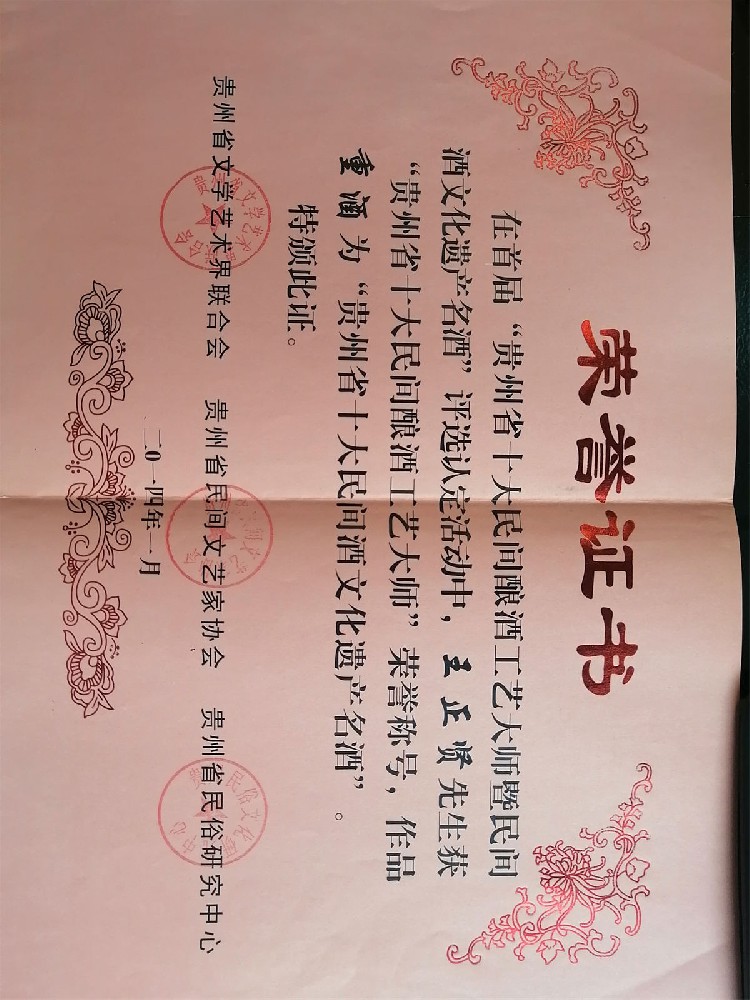 荣誉证书
在首届“贵州省十大民间酿酒工艺大师暨民间
酒文化遗产名酒”评选认定活动中，王正贤先生获
“贵州省十大民间酿酒工艺大师”荣誉称号，作品
重酒为“贵州省十大民间酒文化遗产名酒”。
特颁此证。
贵州省文学艺术界联合会 贵州省民间文艺家协会 贵州省民俗研究中心
二0一四年一月